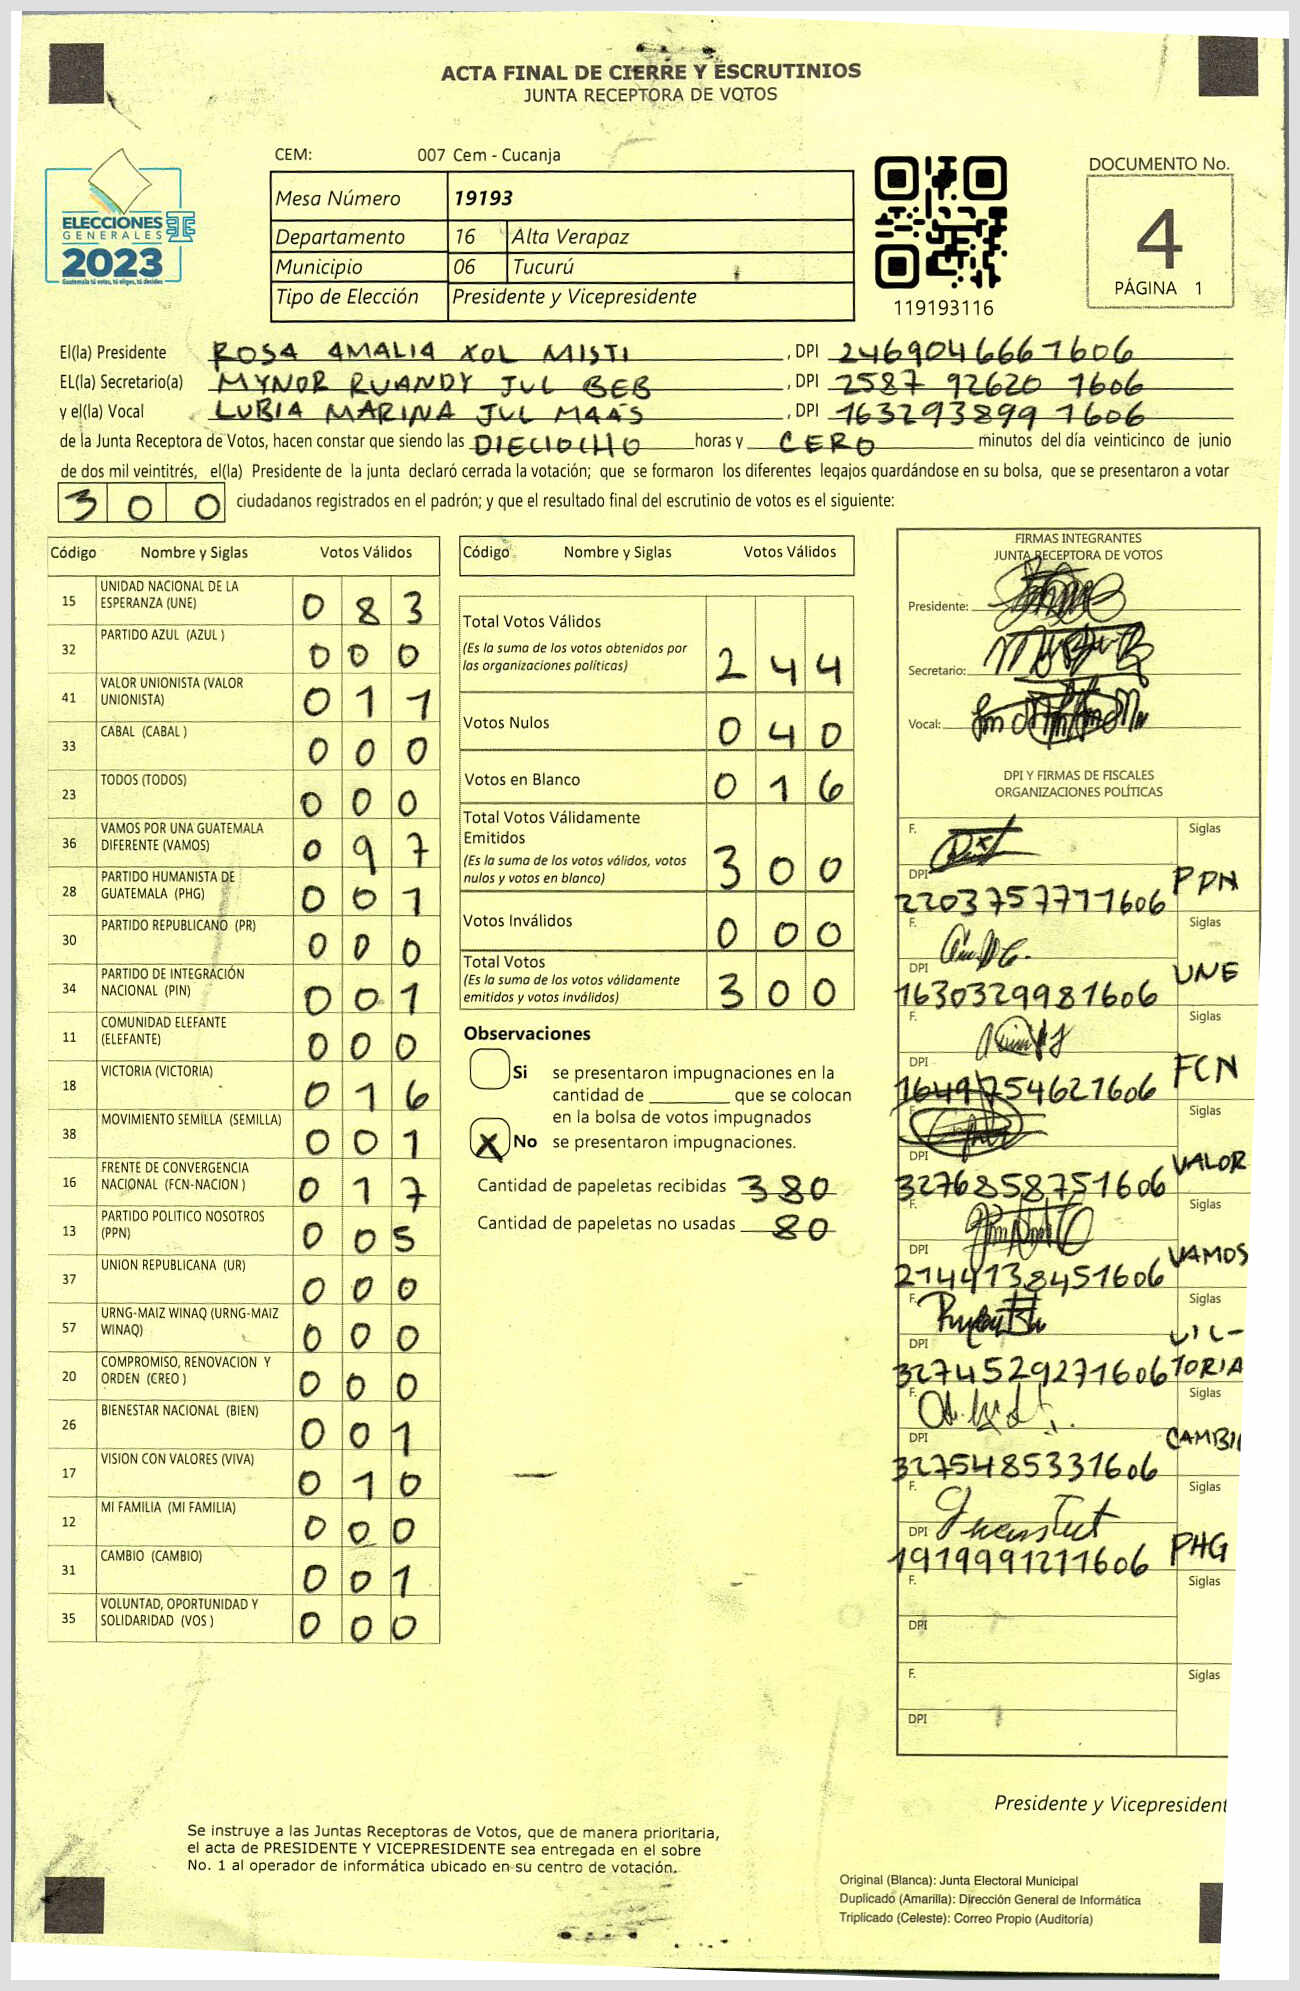 ACTA FINAL DE CIERRE Y ESCRUTINIOS
JUNTA RECEPTORA DE VOTOS
ELECCIONES
GENERALES
2023
Guatemala tú votas, tú eliges, tú decides
CEM: 007 Cem - Cucanja
Mesa Número 19193
Departamento 16 Alta Verapaz
Municipio 06 Tucurú
Tipo de Elección Presidente y Vicepresidente
119193116
DOCUMENTO No.
4
PÁGINA 1
El(la) Presidente ROSA AMALIA XOL MISTI, DPI 2469046661606
EL(la) Secretario(a) MYNOR RUANDY JUL BEB, DPI 2587 92620 1606
y el(la) Vocal LUBIA MARINA JUL MAÁS, DPI 163293899 1606
de la Junta Receptora de Votos, hacen constar que siendo las DIECIOCHO horas y CERO minutos del día veinticinco de junio
de dos mil veintitrés, el(la) Presidente de la junta declaró cerrada la votación; que se formaron los diferentes legajos guardándose en su bolsa, que se presentaron a votar
300 ciudadanos registrados en el padrón; y que el resultado final del escrutinio de votos es el siguiente:
Código Nombre y Siglas Votos Válidos
15 UNIDAD NACIONAL DE LA ESPERANZA (UNE) 083
32 PARTIDO AZUL (AZUL ) 000
41 VALOR UNIONISTA (VALOR UNIONISTA) 011
33 CABAL (CABAL ) 000
23 TODOS (TODOS) 000
36 VAMOS POR UNA GUATEMALA DIFERENTE (VAMOS) 097
28 PARTIDO HUMANISTA DE GUATEMALA (PHG) 001
30 PARTIDO REPUBLICANO (PR) 000
34 PARTIDO DE INTEGRACIÓN NACIONAL (PIN) 001
11 COMUNIDAD ELEFANTE (ELEFANTE) 000
18 VICTORIA (VICTORIA) 016
38 MOVIMIENTO SEMILLA (SEMILLA) 001
16 FRENTE DE CONVERGENCIA NACIONAL (FCN-NACION ) 017
13 PARTIDO POLITICO NOSOTROS (PPN) 005
37 UNION REPUBLICANA (UR) 000
57 URNG-MAIZ WINAQ (URNG-MAIZ WINAQ) 000
20 COMPROMISO, RENOVACION Y ORDEN (CREO ) 000
26 BIENESTAR NACIONAL (BIEN) 001
17 VISION CON VALORES (VIVA) 010
12 MI FAMILIA (MI FAMILIA) 000
31 CAMBIO (CAMBIO) 001
35 VOLUNTAD, OPORTUNIDAD Y SOLIDARIDAD (VOS ) 000
Código Nombre y Siglas Votos Válidos
Total Votos Válidos
(Es la suma de los votos obtenidos por
las organizaciones políticas) 244
Votos Nulos 040
Votos en Blanco 016
Total Votos Válidamente
Emitidos
(Es la suma de los votos válidos, votos
nulos y votos en blanco) 300
Votos Inválidos 000
Total Votos
(Es la suma de los votos válidamente
emitidos y votos inválidos) 300
Observaciones
Si se presentaron impugnaciones en la
cantidad de ________ que se colocan
en la bolsa de votos impugnados
X No se presentaron impugnaciones.
Cantidad de papeletas recibidas 380
Cantidad de papeletas no usadas 80
FIRMAS INTEGRANTES
JUNTA RECEPTORA DE VOTOS
Presidente:
Secretario:
Vocal:
DPI Y FIRMAS DE FISCALES
ORGANIZACIONES POLÍTICAS
F. Siglas
DPI 2203757771606 PPN
F. Siglas
DPI 1630329981606 UNE
F. Siglas
DPI 1649754621606 FCN
F. Siglas
DPI 3276858751606 VALOR
F. Siglas
DPI 2144138451606 VAMOS
F. Siglas
DPI 3274529271606 VIC-TORIA
F. Siglas
DPI 3275485331606 CAMBI
F. Siglas
DPI 1919991211606 PHG
F. Siglas
DPI
F. Siglas
DPI
Presidente y Vicepresident
Se instruye a las Juntas Receptoras de Votos, que de manera prioritaria,
el acta de PRESIDENTE Y VICEPRESIDENTE sea entregada en el sobre
No. 1 al operador de informática ubicado en su centro de votación.
Original (Blanca): Junta Electoral Municipal
Duplicado (Amarilla): Dirección General de Informática
Triplicado (Celeste): Correo Propio (Auditoría)